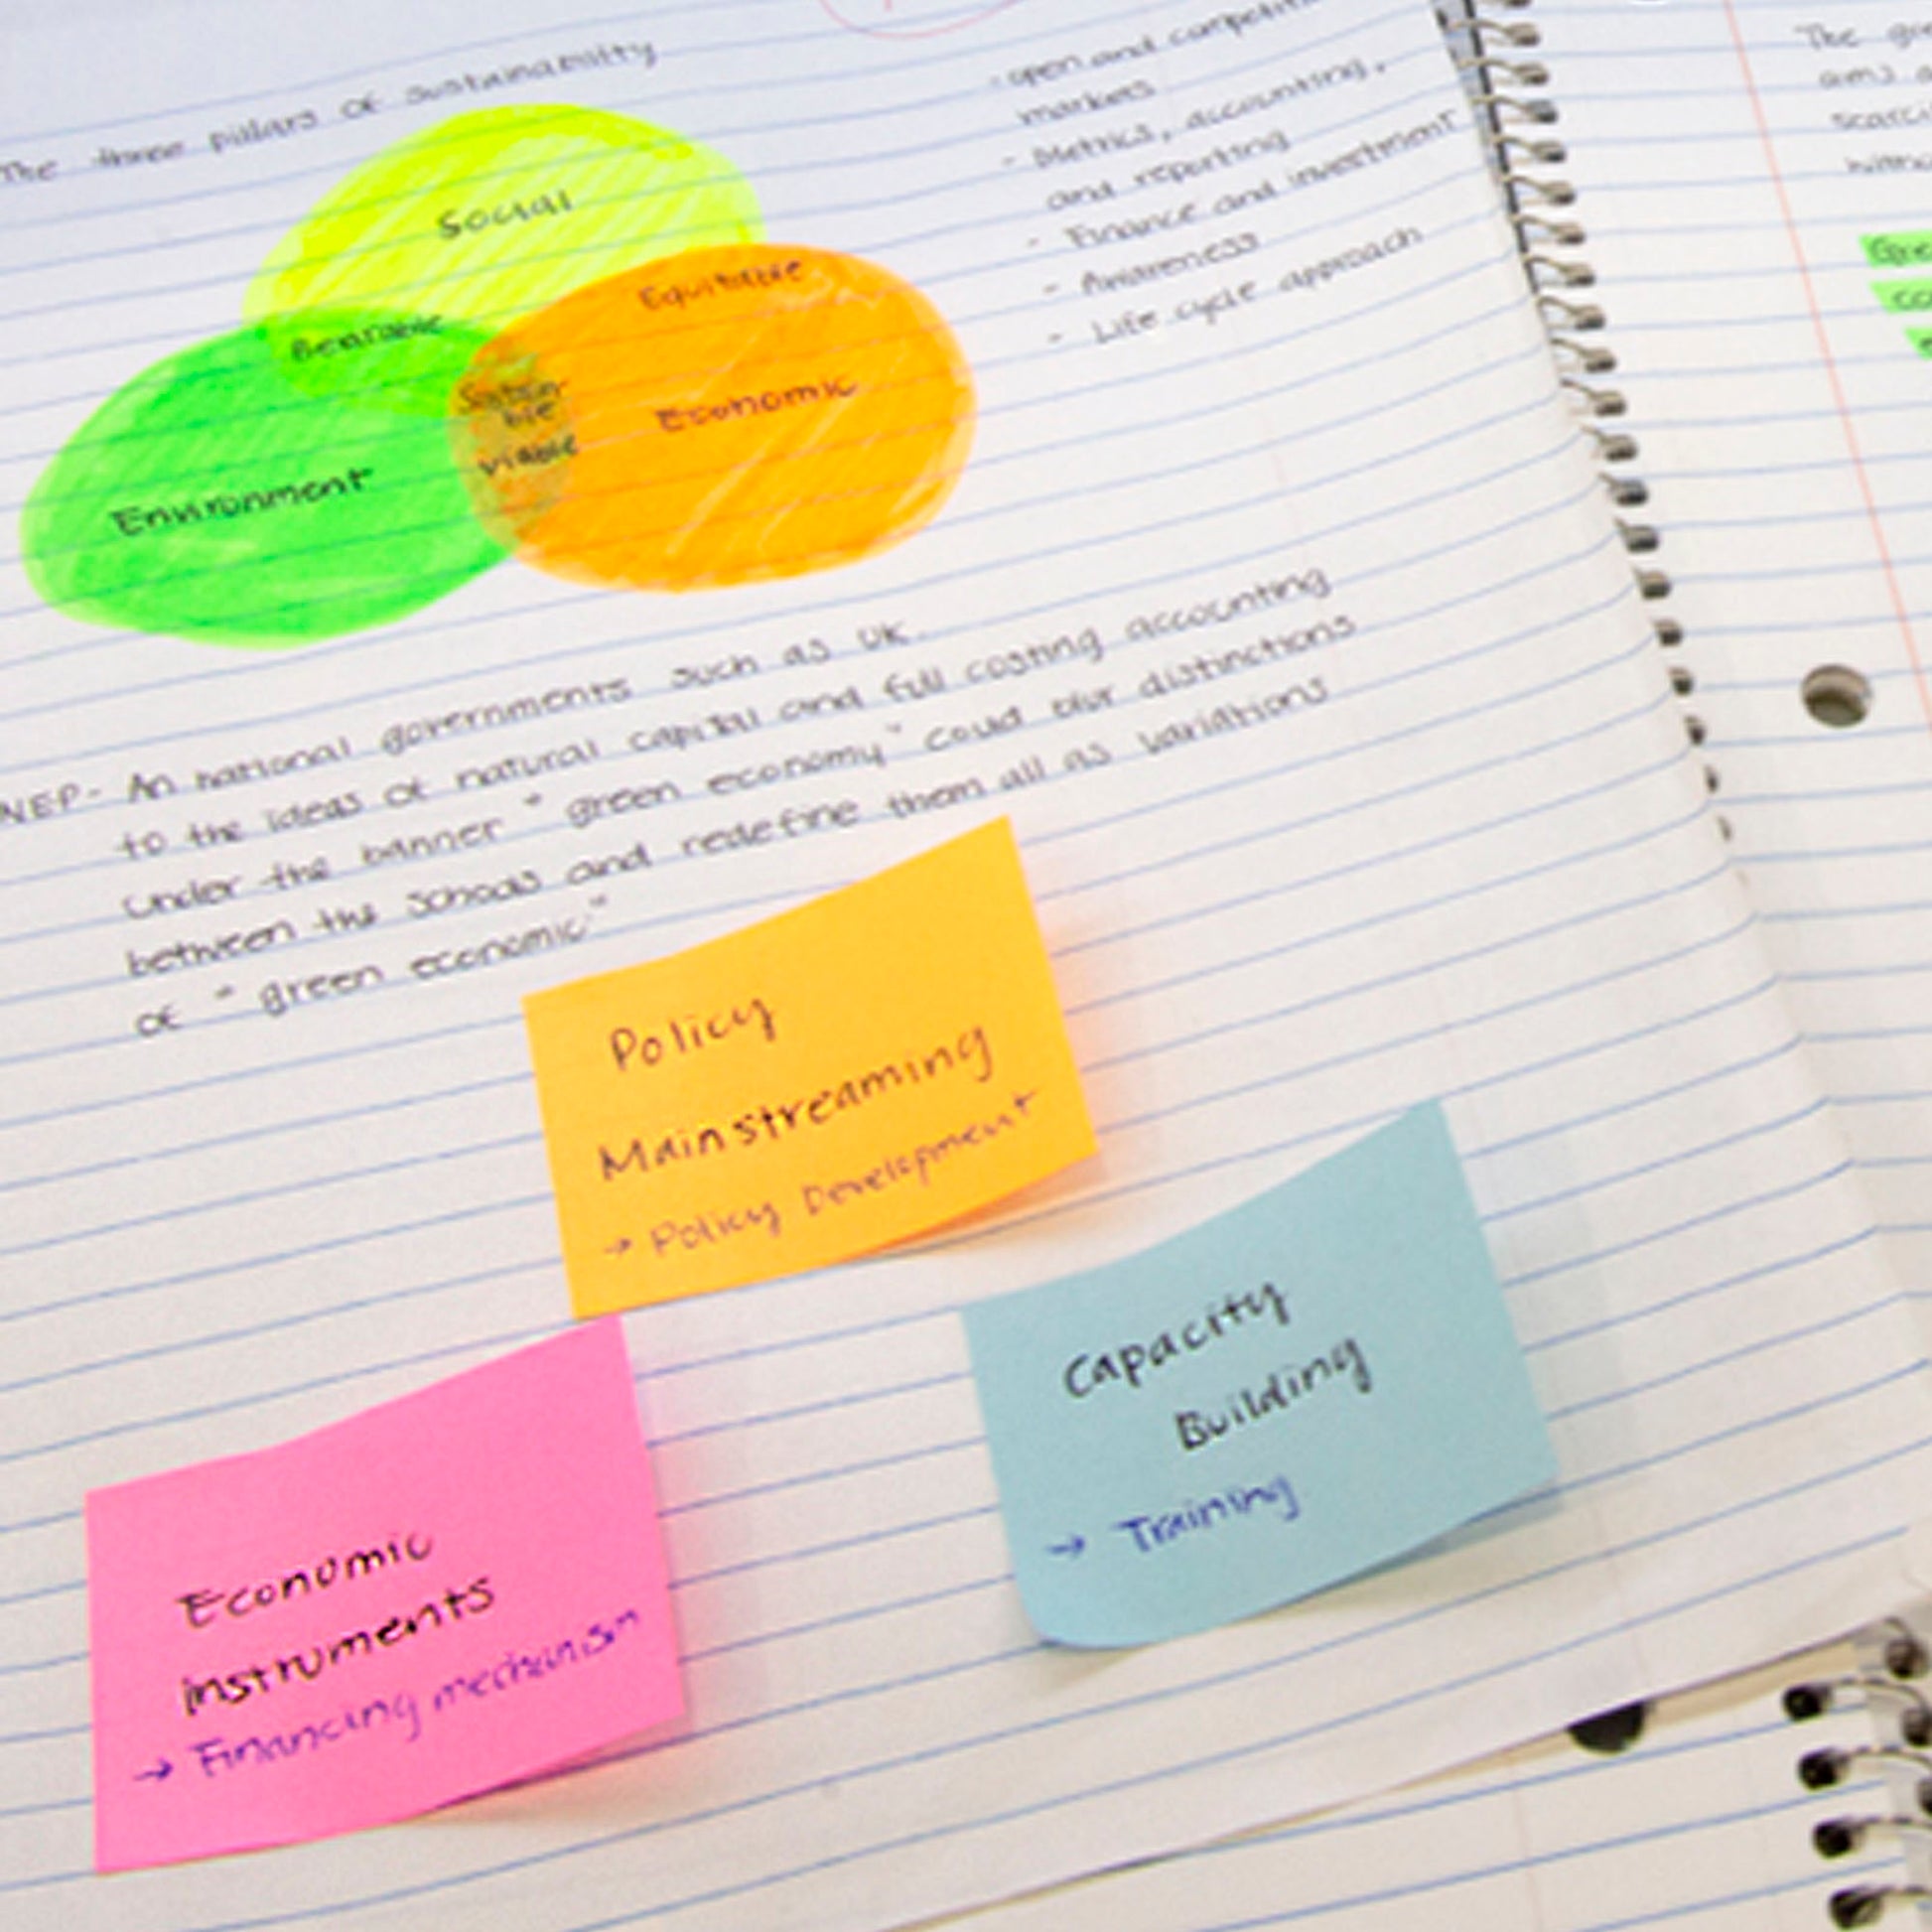 The three pillars of sustainability
Social
Equitable
Bearable
Economic
viable
Environment
- open and
markets
- Metrics, accounting,
and reporting
- Finance and investment
- Awareness
- Life cycle approach
NEP- An national governments such as UK.
to the ideas of natural capital and full costing accounting
under the banner "green economy" could blur distinctions
between the schools and redefine them all as variations
of "green economic"
Policy
Mainstreaming
→ Policy Development
Capacity
Building
→ Training
Economic
Instruments
→ Financing mechanism
The